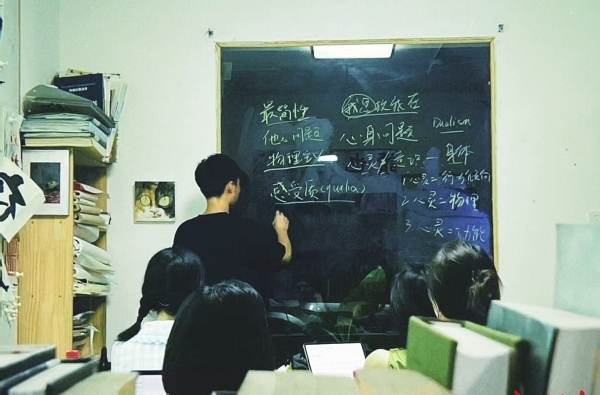 最简性 我思故我在
Dualism
他心问题 心身问题
物理主义 心灵/意识 — 身体
感受质(qualia) 1 心灵=行为倾向
2 心灵=物理
3 心灵=功能